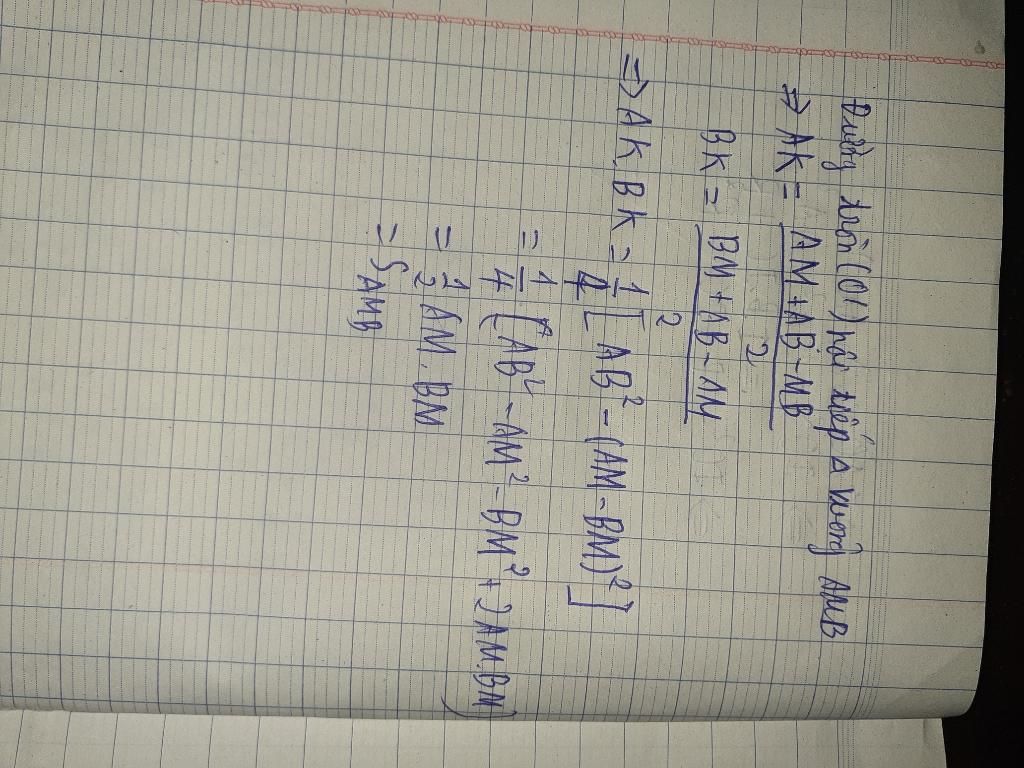 Đường tròn (O') nội tiếp Δ vuông AMB
=> AK = \frac{AM + AB - MB}{2}
BK = \frac{BM + AB - AM}{2}
=> AK.BK = \frac{1}{4} [ AB² - (AM - BM)² ]
= \frac{1}{4} (AB² - AM² - BM² + 2AM.BM)
= \frac{1}{2} AM.BM
= S_{AMB}